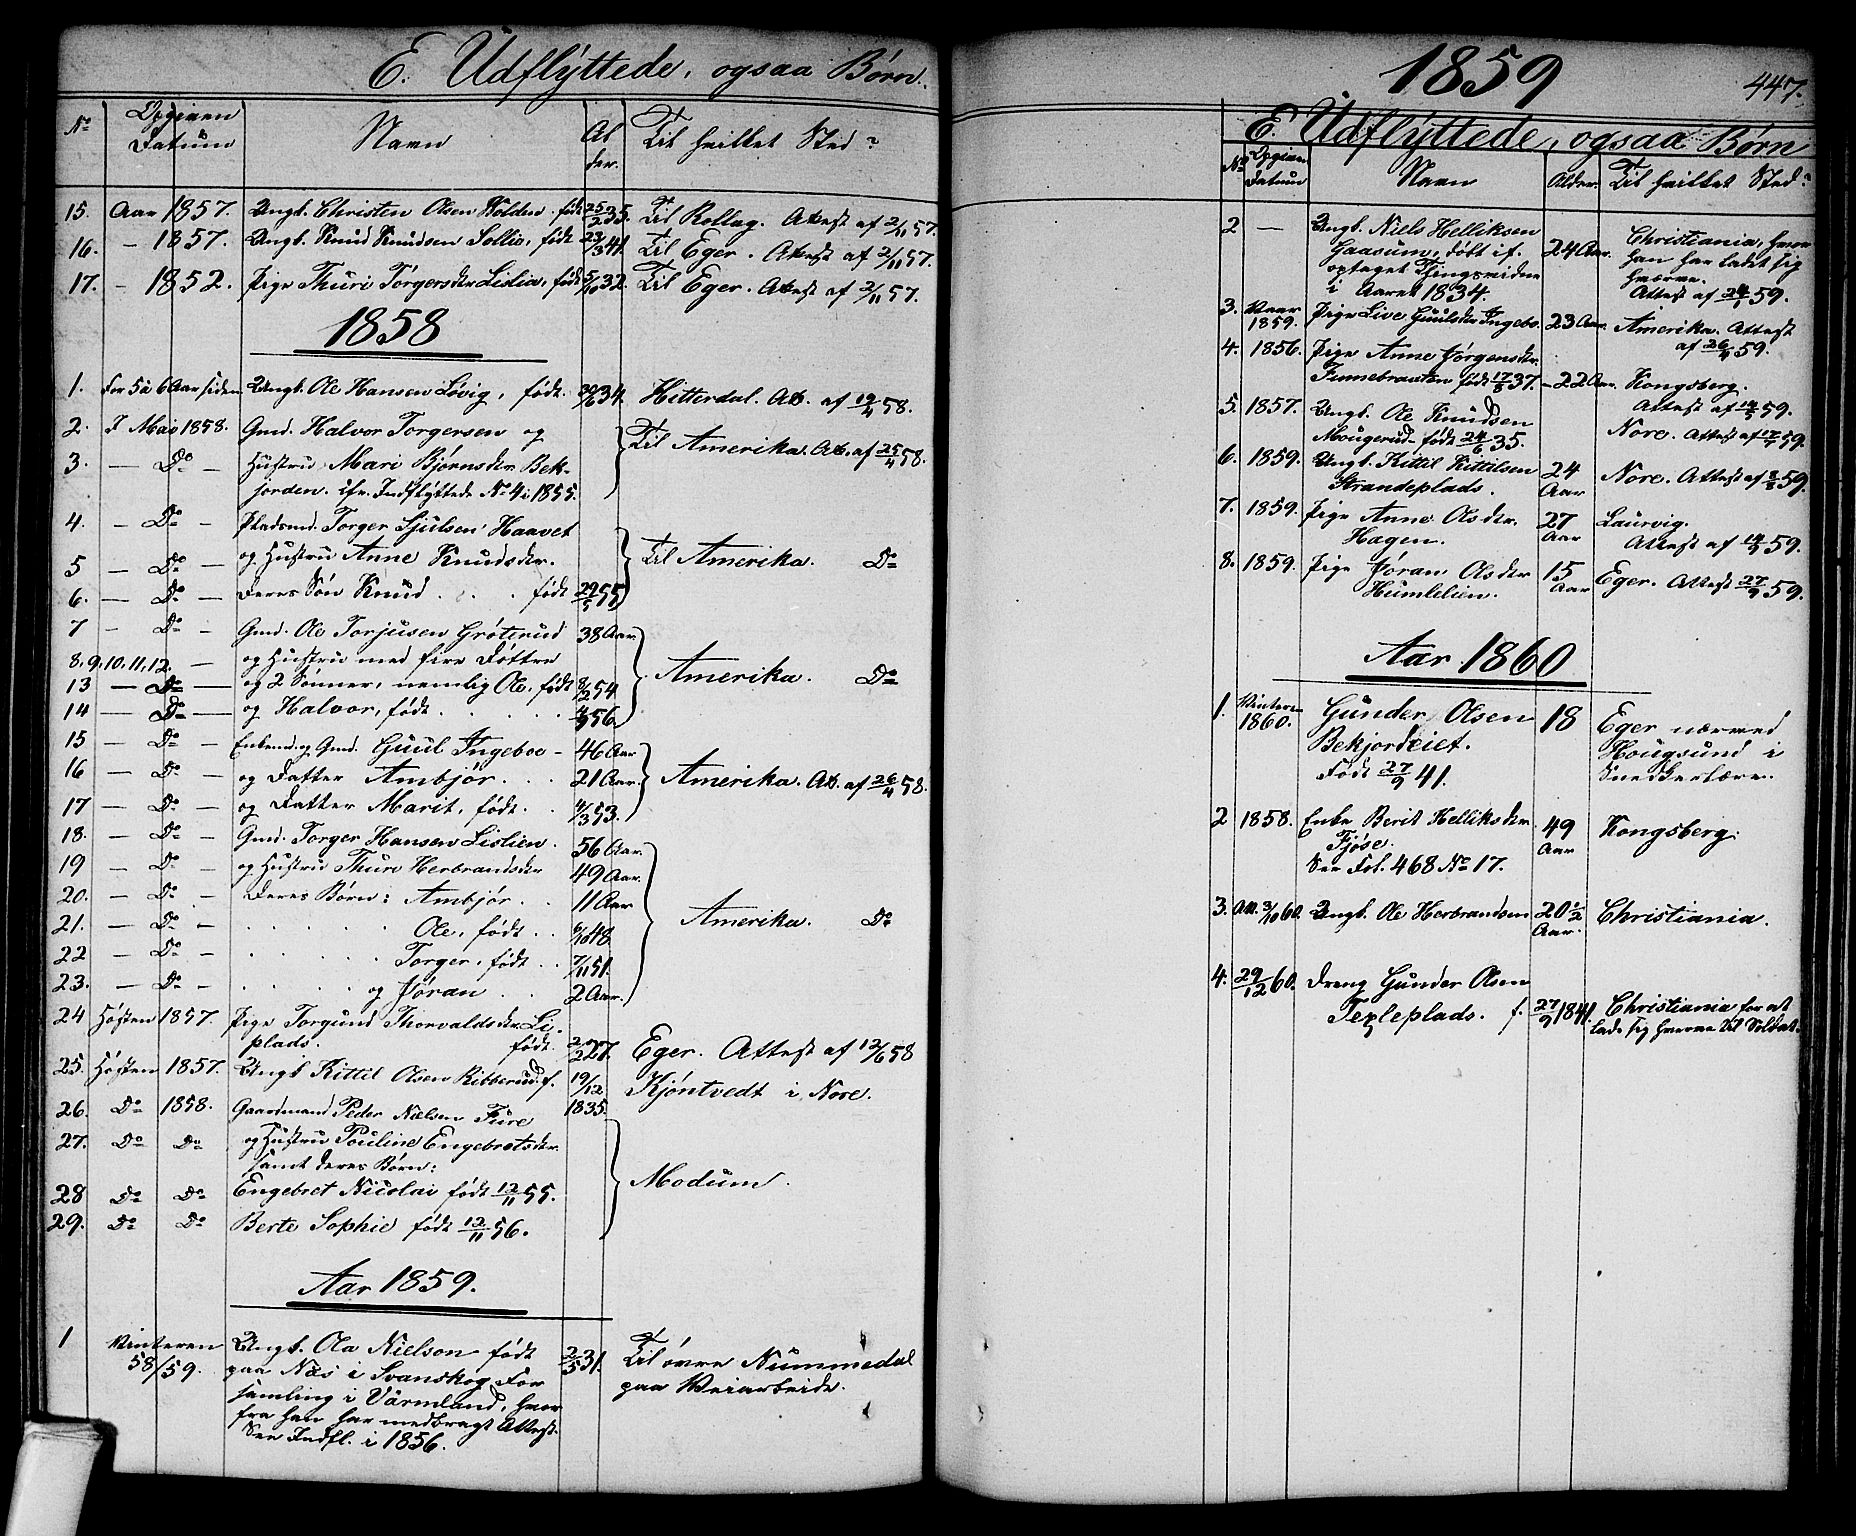 E. Udflyttede, ogsaa Børn.
No Opgiven Datum Navn Alder. Til hvilket Sted?
15. Aar 1857. Ungk. Christen Olsen Kolden. født 25/2 35. Til Rollag. Attest af 2/11 57.
16. – 1857. Ungk. Knud Knudsen Sollie, født 23/3 41. Til Eger. Attest af 2/11 57.
17. – 1852. Pige Thuri Torgersdtr Lislia, født 5/10 32. Til Eger. Attest af 2/11 57.
1858
1. For 5 a 6 Aar siden Ungk. Ole Hansen Løvig, født 30/6 34. Hitterdal. Att. af 19/4 58.
2. I Mai 1858. Gmd. Halvor Torgersen og
3. – Do – Hustru Mari Bjørnsdtr Bek-
jorden. cfr. Indflyttede No 4 i 1855. Til Amerika. Att. af 25/4 58.
4. – Do – Pladsmd. Torger Sjulsen Haavet
5 – Do – og Hustru Anne Knudsdtr. Til Amerika. Do
6. – Do – Deres Søn Knud . . . født 29/5 55
7 – Do – Gmd. Ole Torjusen Grøterud 38 Aar
8, 9, 10, 11, 12. – og Hustru med fire Døttre
13 – Do – og 2 Sønner, nemlig Ole, født 8/2 54 Amerika. Do
14 – Do – og Halvor, født . . . . 4/9 56
15 – Do – Enkemd. og Gmd. Guul Ingeboe – 46 Aar
16 – Do – og Datter Ambjør . . . 21 Aar. Amerika. Att. af 26/4 58.
17 – Do – og Datter Marit, født . . 4/3 53.
18. – Do – Gmd. Torger Hansen Lislien . 56 Aar.
19 – Do – og Hustru Thuri Herbrandsdtr 49 Aar.
20. – Do – Deres Børn: Ambjør . . 11 Aar
21. – Do – . . . . Ole, født . . 6/10 48 Amerika. Do
22 – Do – . . . . Torger, født . . 7/11 51.
23. – Do – . . . . og Jøran . . 2 Aar.
24 Høsten 1857. Pige Torgund Thorvaldsdtr Li-
plads. født 2/2 27. Eger. Attest af 12/6 58
25. Høsten 1857. Ungk Kittil Olsen Ribberud. f. 19/12 1835. Kjøntvedt i Nore.
26. Do 1858. Gaardmand Peder Nielsen Fure
27. Do Do og Hustru Pouline Engebretsdtr.
samt deres Børn: Modum.
28 Do Do Engebret Nicolai født 12/11 55.
29. Do Do Berte Sophie født 12/11 56.
Aar 1859.
1 Vinteren 58/59. Ungk. Ola Nielson født 2/5 31. Til øvre Nummedal
paa Näs i Svanskog For paa Veiarbeide.
samling i Värmland, hvor
fra han har medbragt Attest.
See Indfl. i 1856.
1859
447.
E. Udflyttede, ogsaa Børn
No Opgiven Datum Navn Alder. Til hvilket Sted?
2 – Ungk. Niels Helliksen 24 Aar. Christiania, hvor
Gaasum, døbt if. han har ladet sig
optaget Thingsvidne hverve.
i Aaret 1834. Attest af 24/1 59.
3. Vaar 1859. Pige Live Guulsdtr Ingebo. 23 Aar. Amerika. Attest
af 26/4 59.
4. 1856. Pige Anne Jørgensdtr.
Finnebraaten født 17/8 37. – 22 Aar. Kongsberg.
Attest af 14/5 59.
5. 1857. Ungk. Ole Knudsen
Mougerud født 24/6 35. Nore. Attest af 17/7 59.
6. 1859. Ungk. Kittil Kittilsen 24 Aar Nore. Attest af 8/8 59.
Strandeplads.
7. 1859. Pige Anne Olsdtr. 27 Aar Laurvig.
Hagen. Attest af 14/9 59.
8. 1859. Pige Jøran Olsdtr 15 Aar Eger. Attest 27/9 59.
Humlelien.
Aar 1860
1. Vinteren 1860. Gunder Olsen 18 Eger nærmed
Bekjordeiet. Hougsund i
Født 27/9 41. Snedkerlære.
2 1858. Enke Berit Helliksdtr 49 Aar Kongsberg.
Fjøse.
See Fol. 468 No 17.
3. Att. 3/10 60. Ungk. Ole Herbrandsen 20 1/2 Aar. Christiania.
4. 29/12 60. Dreng Gunder Olsen
Texleplads. f. 27/9 1841. Christiania for at
lade sig hverve til Soldat.